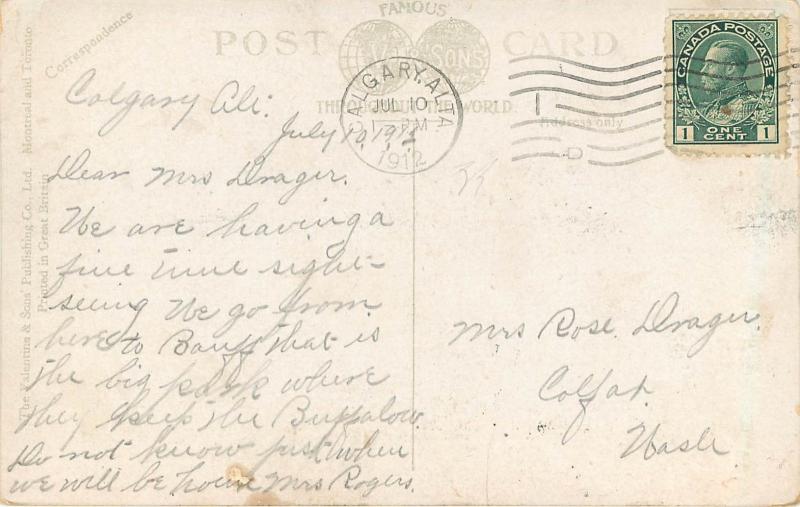 FAMOUS
POST CARD
VALENTINE & SONS
THROUGHOUT THE WORLD
Correspondence
Address only
The Valentine & Sons' Publishing Co., Ltd. Montreal and Toronto
Printed in Great Britain
CALGARY, ALTA
JUL 10
PM
1912
CANADA POSTAGE
1 ONE CENT 1
Calgary Alt.
July 10, 1912
Dear Mrs Drager.
We are having a
fine time sight-
seeing We go from
here to Banff that is
the big park where
they keep the Buffalow.
Do not know just when
we will be home Mrs Rogers.
Mrs Rose Drager.
Colfax
Wash